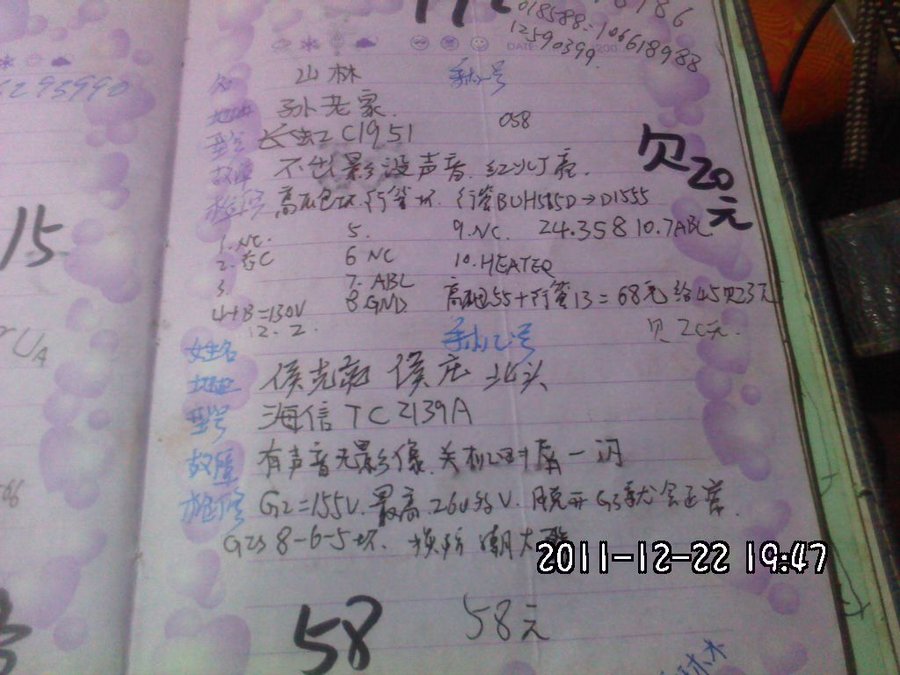 018588-106618988
12590399
DATE
6293990
山林 手机号
孙老家
058
型号 长虹 C1951
故障 不出影没声音.红灯亮.
欠20元
高压包坏.行管坏. 行管BUH515D→D1555
15
1.NC. 5. 9.NC. 24.358 10.7ABL
2. C 6 NC 10.HEATER
3. 7. ABL
4+B=130V 8.GND 高压包55+行管13=68元给45欠23元
12.2. 欠20元.
姓名 手机号
地址 侯庄 北头
型号 海信TC2139A
故障 有声音无影像.关机时屏一闪
维修 G2=155V.最高260多V.脱开G3就会正常.
8-6-5坏.
2011-12-22 19:47
58 58元